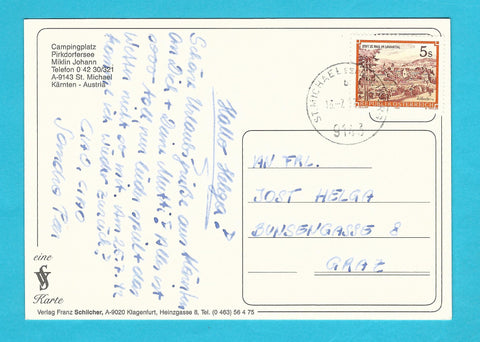 Campingplatz
Pirkdorfersee
Miklin Johann
Telefon 0 42 30/321
A-9143 St. Michael
Kärnten - Austria
Hallo Helga!
Schöne Urlaubsgrüße aus Kärnten
an Dich + Deine Mutti! Alles ist
sooo toll nur leider spielt das
Wetter nicht so mit. Am 25.7.
ich wieder zurück!
CIAO, CIAO
Sandra
eine
Karte
Verlag Franz Schlicher, A-9020 Klagenfurt, Heinzgasse 8, Tel. (0 463) 56 4 75
STIFT ST. PAUL IM LAVANTTAL
5s
REPUBLIK ÖSTERREICH
ST. MICHAEL
9143
AN FRL.
JOST HELGA
BUNSENGASSE 8
GRAZ